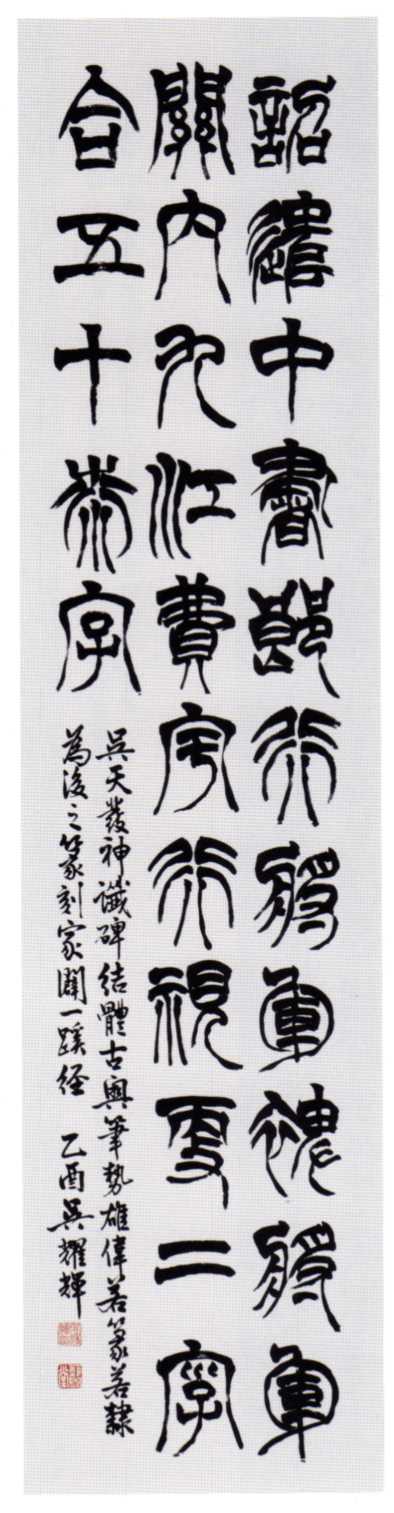 詔遣中書郎行將軍裨將軍
關內九江費宇行視更二字
合五十桼字
吳天發神讖碑結體古奧筆勢雄偉若篆若隸
為後之篆刻家闢一蹊径 乙酉吳耀輝